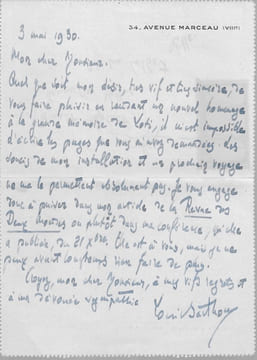 34, AVENUE MARCEAU (VIIIe)
3 mai 1930.
Mon cher Monsieur.
Quel que soit mon désir, très vif et très sincère, de
vous faire plaisir en rendant un nouvel hommage
à la grande mémoire de Loti, il m'est impossible
d'écrire les pages que vous m'avez demandées. Les
soucis de mon installation et un prochain voyage
ne me le permettent absolument pas. Je vous engage
donc à puiser dans mon article de la Revue des
Deux Mondes ou plutôt dans ma conférence, qu'elle
a publiée, du 21 Xbre. Elle est à vous, mais je ne
peux avant longtemps rien faire de plus.
Croyez, mon cher Monsieur, à mes vifs regrets et
à ma dévouée sympathie
Louis Barthou